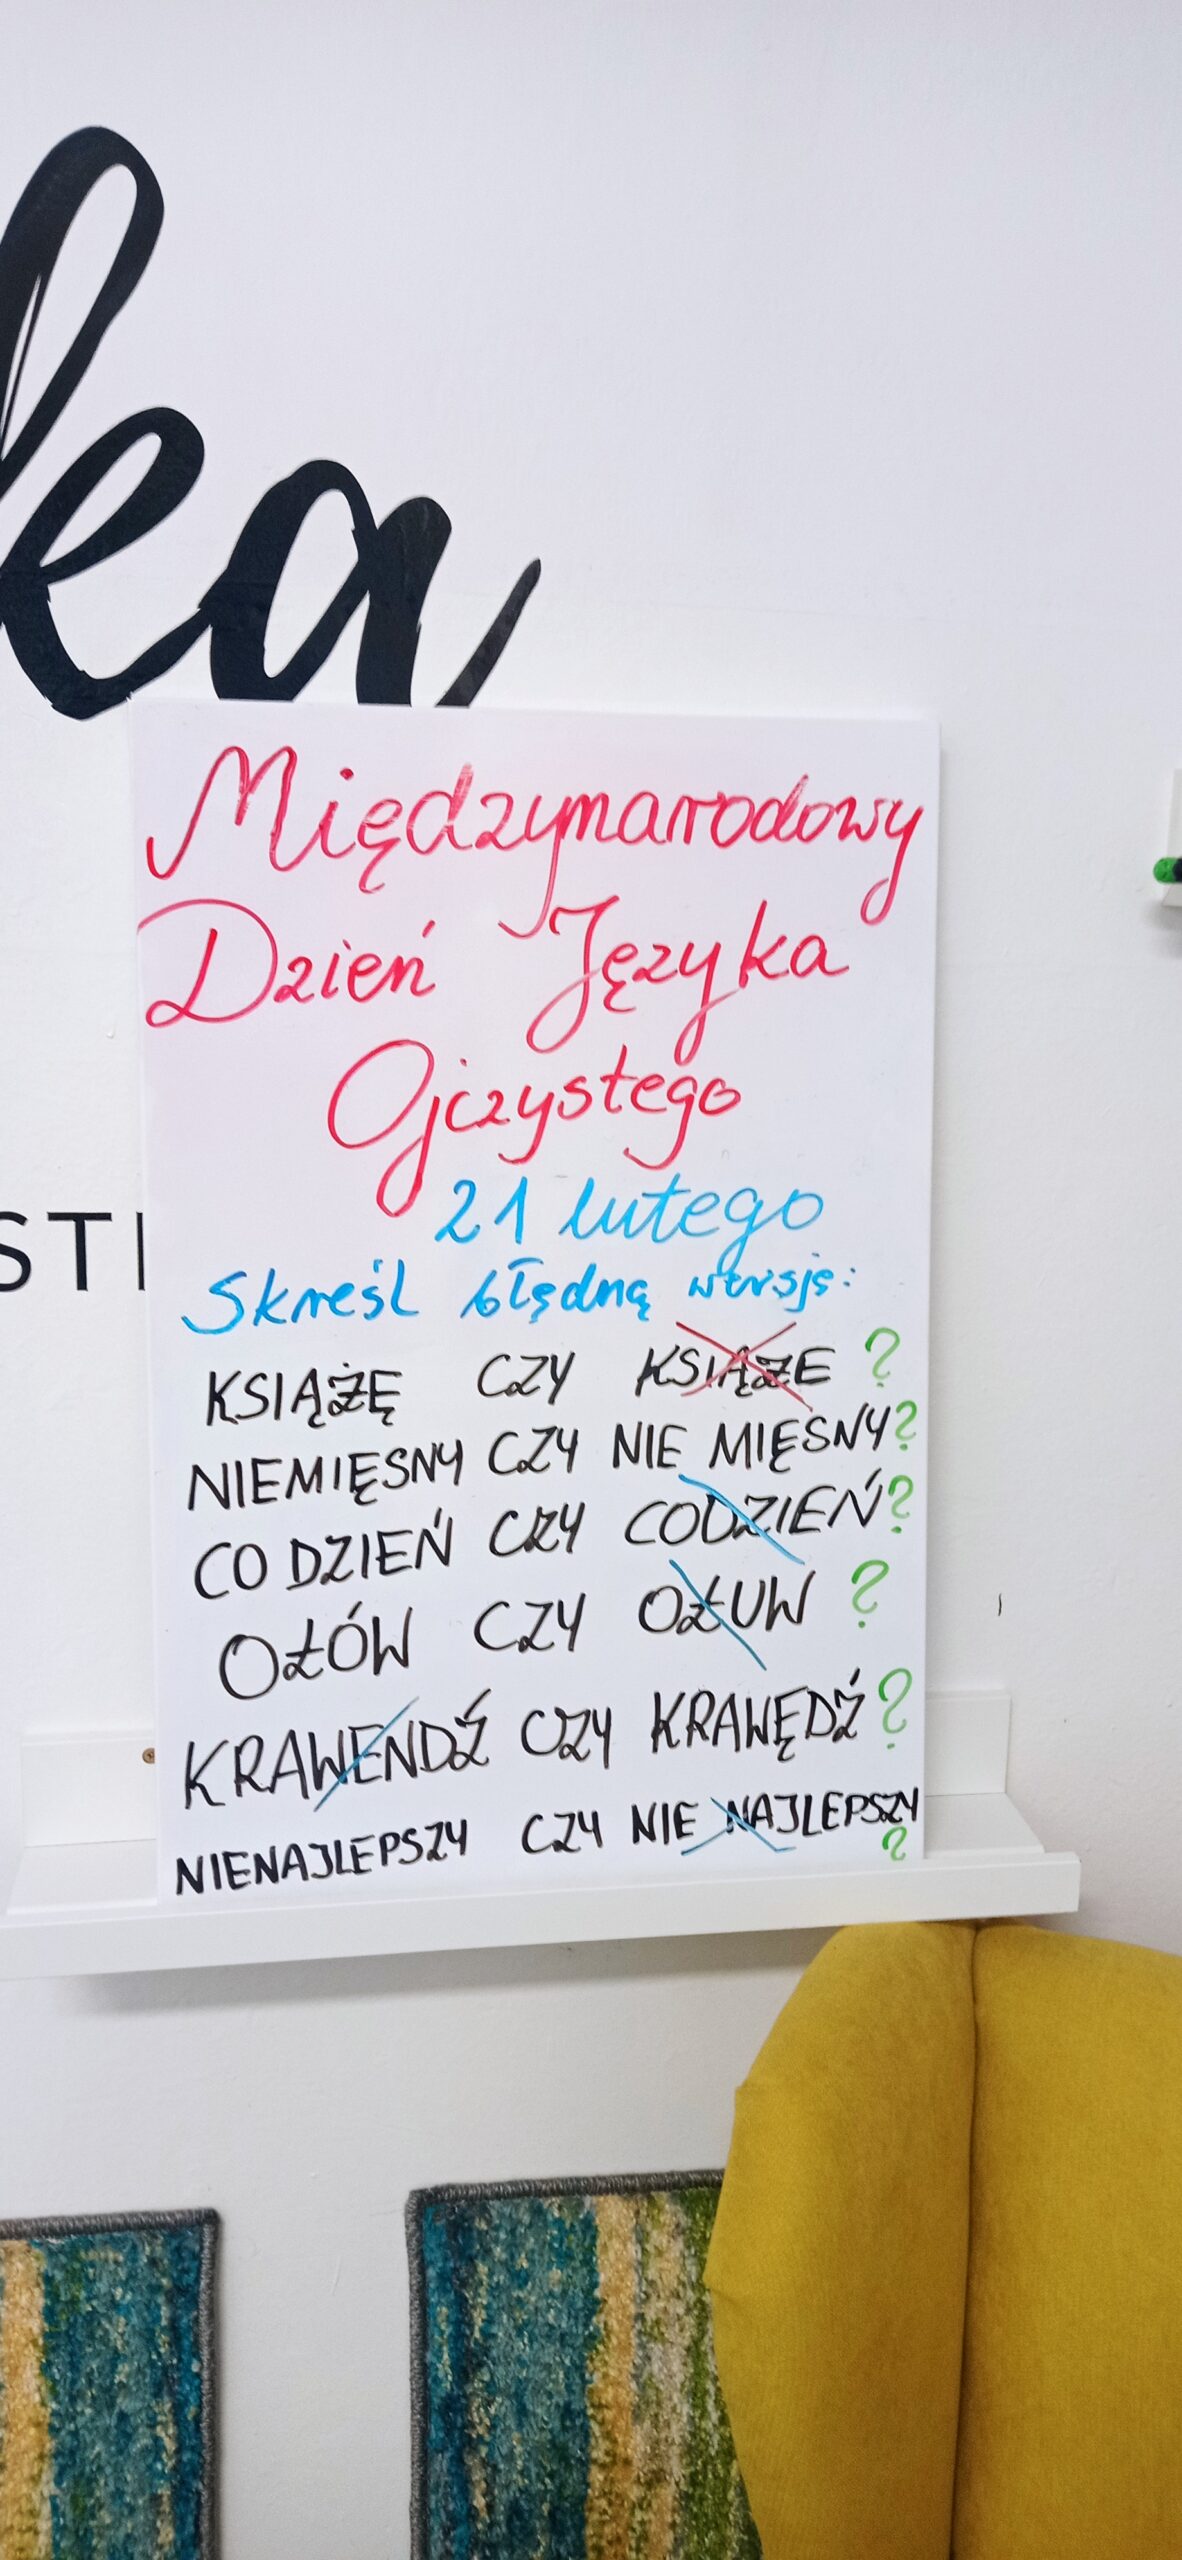 ka
STI
Międzynarodowy
Dzień Języka
Ojczystego
21 lutego
Skreśl błędną wersję:
KSIĄŻĘ CZY KSIĄŻE ?
NIEMIĘSNY CZY NIE MIĘSNY?
CO DZIEŃ CZY CODZIEŃ?
OŁÓW CZY OŁUW ?
KRAWENDŹ CZY KRAWĘDŹ?
NIENAJLEPSZY CZY NIE NAJLEPSZY
?